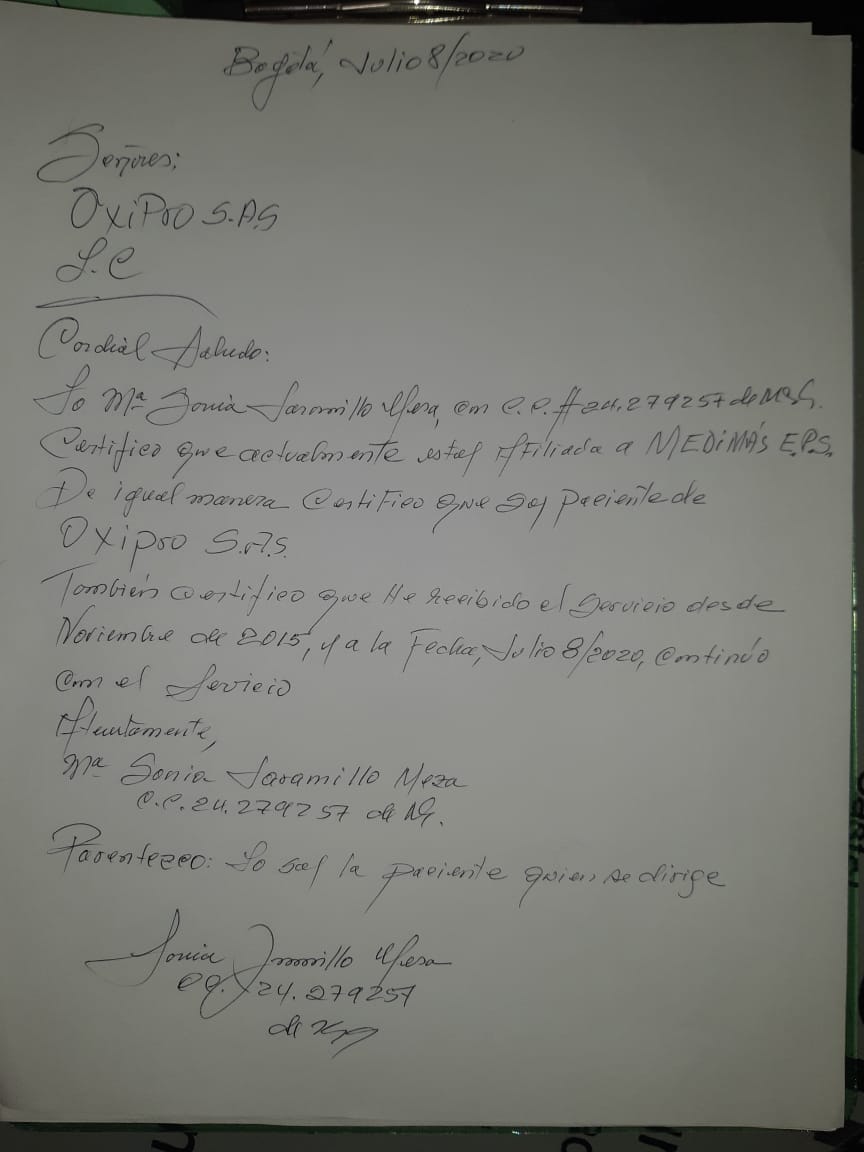 Bogotá, Julio 8/2020
Señores:
OxiPro S.A.S
L.C
Cordial Saludo:
Yo Mª Sonia Jaramillo Meza, con C.C. # 24.279257 de
Certifico que actualmente estoy Afiliada a MEDIMÁS E.P.S.
De igual manera Certifico que soy paciente de
Oxipro S.A.S.
También certifico que He recibido el Servicio desde
Noviembre de 2015, y a la Fecha, Julio 8/2020, Continúo
Con el Servicio
Atentamente,
Mª Sonia Jaramillo Meza
C.C. 24.279257 de M.
Parentezco: Yo soy la paciente quien se dirige
Sonia Jaramillo Meza
CC. 24.279257
de